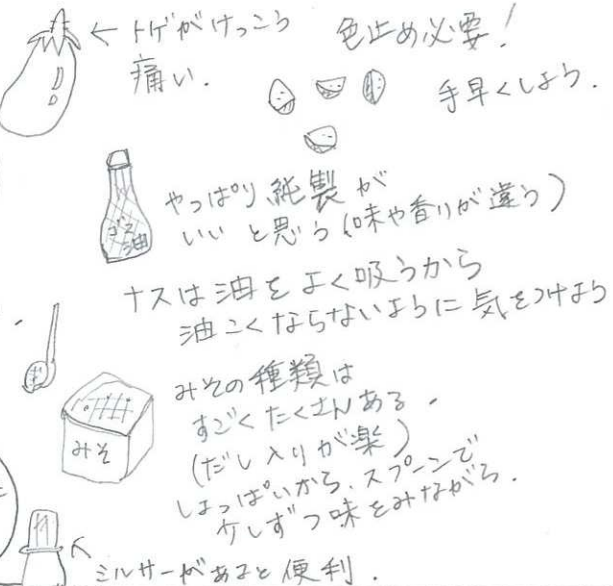 ←トゲがけっこう
痛い.
色止め必要!
手早くしよう.
ゴマ
油
やっぱり、純製が
いい と思う(味や香りが違う)
ナスは油をよく吸うから
油こくならないように気をつけよう
みその種類は
すごくたくさんある.
(だし入りが楽)
みそ
しょっぱいから、スプーンで
少しずつ味をみながら.
ミルサーがあると便利.